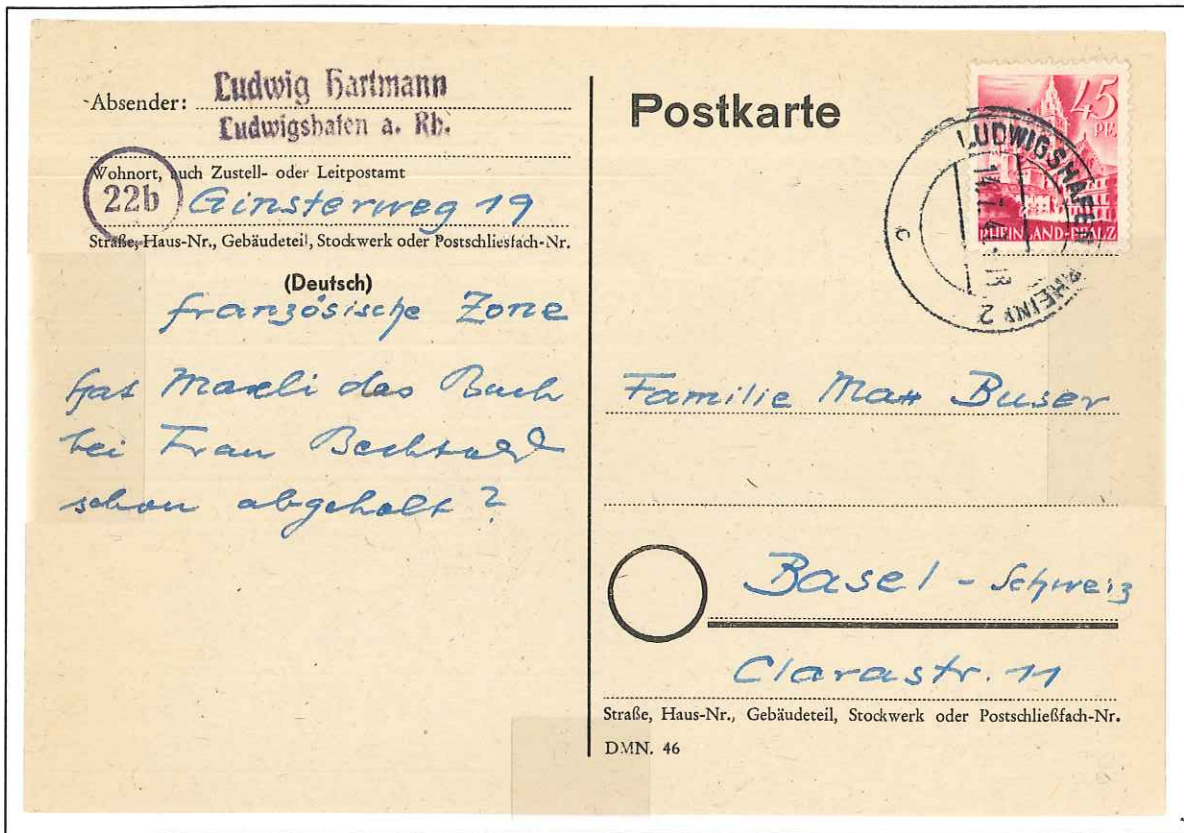 Absender: Ludwig Hartmann
Ludwigshafen a. Rh.
Wohnort, auch Zustell- oder Leitpostamt
22b
Ginsterweg 19
Straße, Haus-Nr., Gebäudeteil, Stockwerk oder Postschliesfach-Nr.
(Deutsch)
französische Zone
Hat Maxli das Buch
bei Frau
schon abgeholt?
Postkarte
45
PF.
RHEINLAND-PFALZ
LUDWIGSHAFEN
RHEIN
2
c
Familie Max Buser
Basel - Schweiz
Clarastr. 11
Straße, Haus-Nr., Gebäudeteil, Stockwerk oder Postschließfach-Nr.
DMN. 46